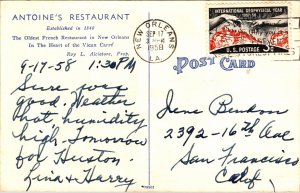 ANTOINE'S RESTAURANT
Established in 1840
The Oldest French Restaurant in New Orleans
In The Heart of the Vieux Carré
Roy L. Alciatore, Prop.
9-17-58 1:30PM
Sure
good. Weather
hot humidity
high. Tomorrow
for Huston.
Lina & Harry
NEW ORLEANS
SEP 17
1958
LA.
INTERNATIONAL GEOPHYSICAL YEAR
1957-58
U.S. POSTAGE 3¢
POST CARD
Jene
2392-16th Ave
San Francisco
Calif